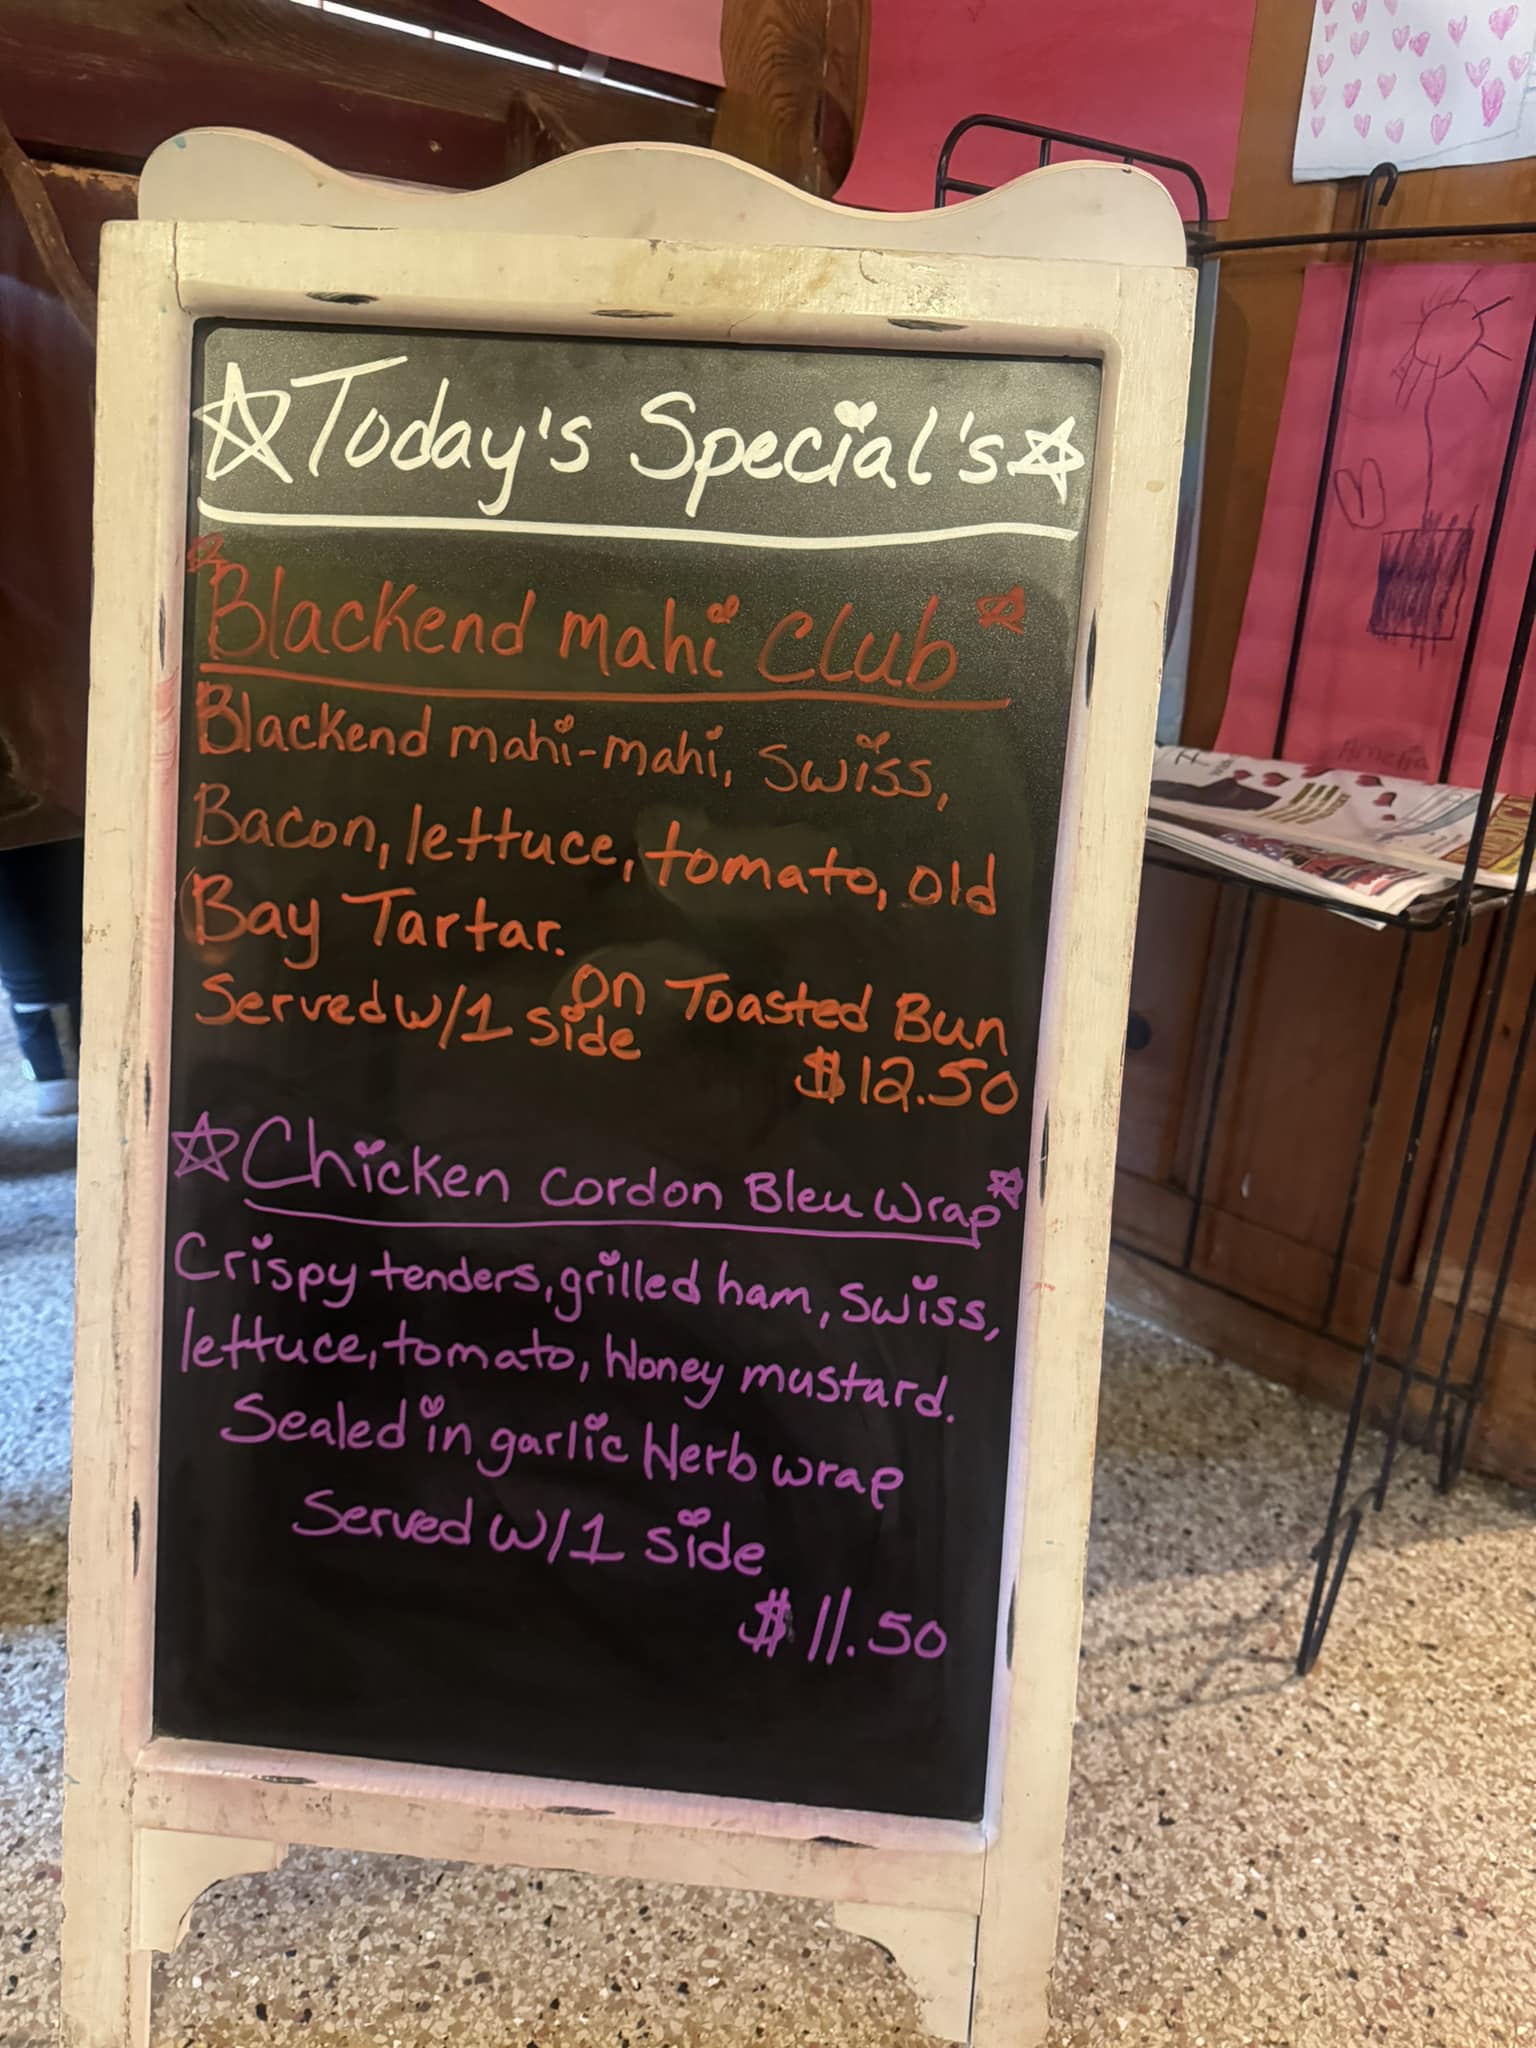 ☆Today's Special's☆
☆Blackend mahi Club☆
Blackend mahi-mahi, Swiss,
Bacon, lettuce, tomato, old
Bay Tartar.
on Toasted Bun
Served w/1 side
$12.50
☆Chicken Cordon Bleu Wrap☆
Crispy tenders, grilled ham, Swiss,
lettuce, tomato, Honey mustard.
Sealed in garlic Herb wrap
Served w/1 side
$11.50
Amelia